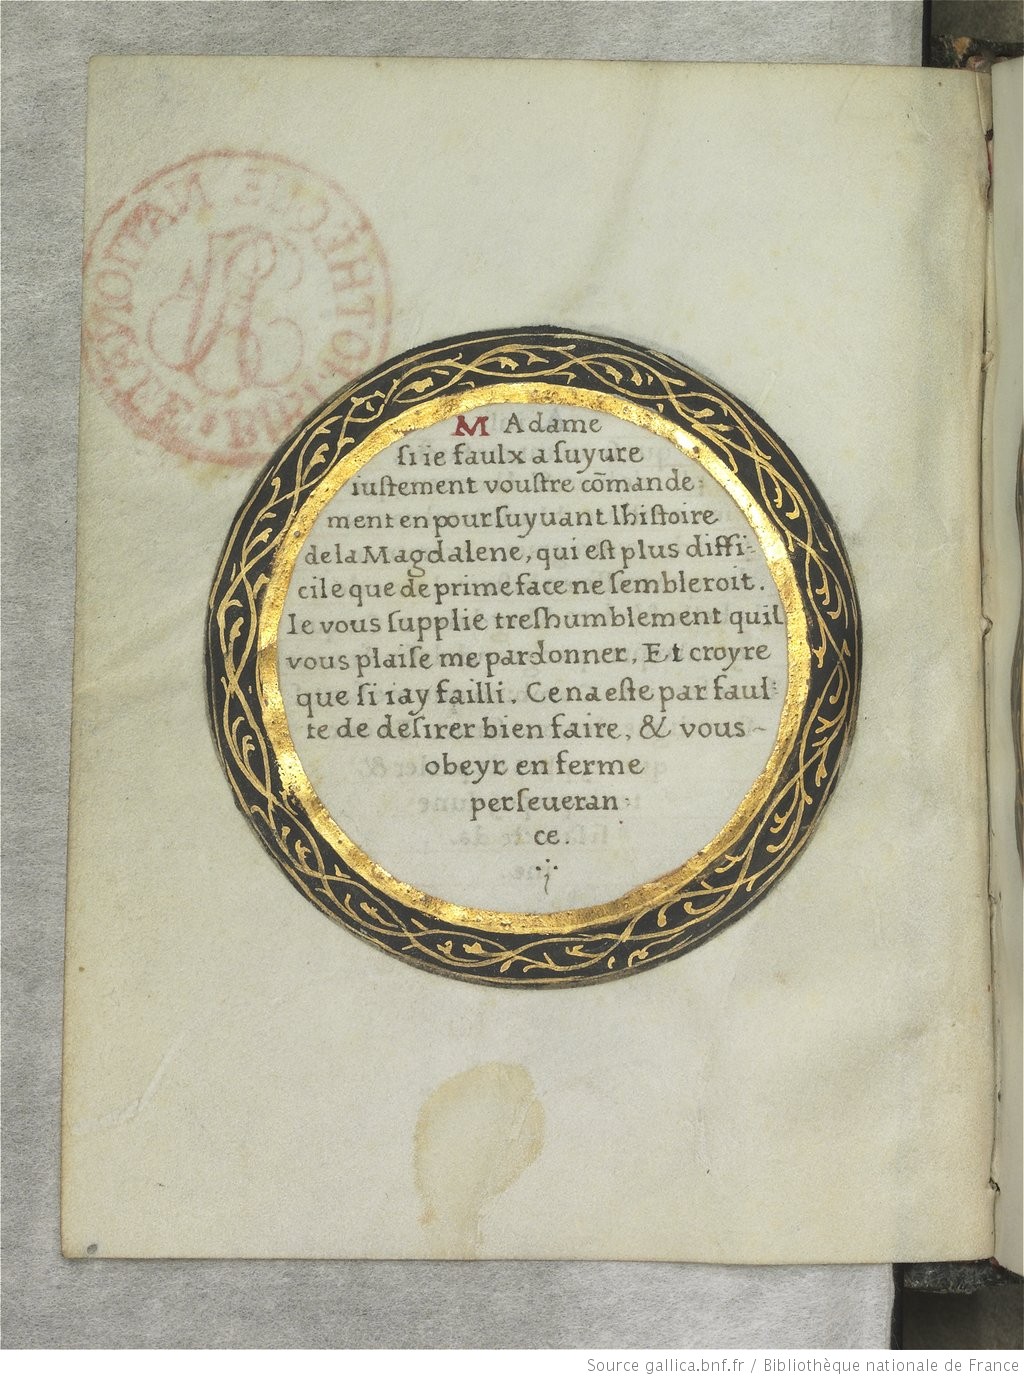 M Adame
si ie faulx a suyure
iustement voustre cõmande:
ment en poursuyuant lhistoire
de la Magdalene, qui est plus diffi:
cile que de prime face ne sembleroit.
Ie vous supplie treshumblement quil
vous plaise me pardonner, Et croyre
que si iay failli. Ce na este par faul:
te de desirer bien faire, & vous ~
obeyr en ferme
perseueran:
ce.
Source gallica.bnf.fr / Bibliothèque nationale de France